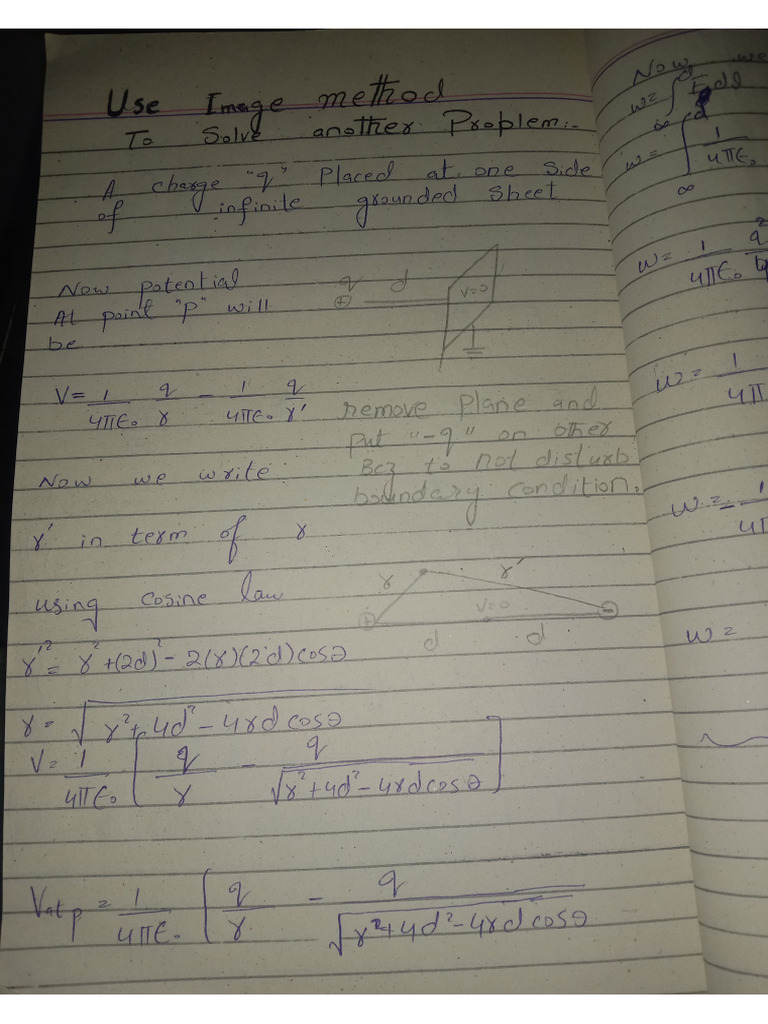 Use Image method
To Solve another Problem:-
A charge "q" Placed at one side
of infinite grounded sheet
Now potential
At point "P" will
be
q d
V=0
V= 1/4πε₀ q/r - 1/4πε₀ q/r'
remove plane and
put "-q" on other
Bcz to not disturb
boundary condition.
Now we write
r' in term of r
using cosine law
r r'
V=0
d d
r'² = r²+(2d)²-2(r)(2d)cosθ
r = √r²+4d²-4rdcosθ
V= 1/4πε₀ [ q/r - q/√r²+4d²-4rdcosθ ]
Vat p = 1/4πε₀ [ q/r - q/√r²+4d²-4rdcosθ
Now we
w= ∫ F dl
w= ∫ 1/4πε₀
w= 1/4πε₀ q²
w= 1/4π
w=- 1/4π
w=